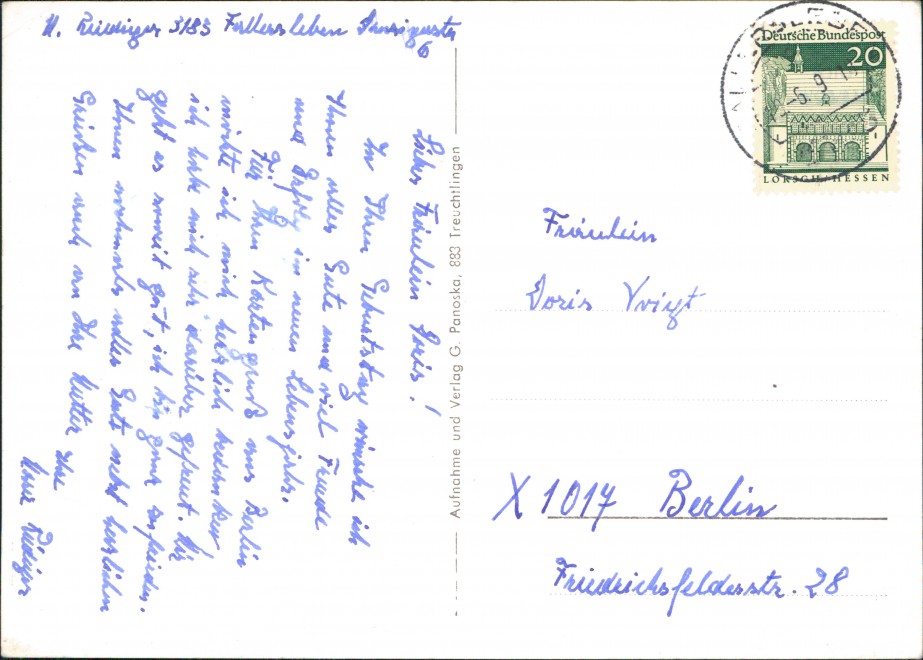 U. Rüdiger 3183 Fallersleben Danzigerstr
6
Liebes Fräulein Doris!
Zu Ihrem Geburtstag wünsche ich
Ihnen alles Gute und viel Freude
und Erfolg im neuen Lebensjahr.
Für Ihren Kartengruß aus Berlin
möchte ich mich herzlich bedanken
ich habe mich sehr darüber gefreut. Mir
geht es soweit gut, ich bin ganz zufrieden.
Ihnen nochmals alles Gute nebst herzlichen
Grüßen auch an Ihre Mutter Ihre
Rüdiger
Aufnahme und Verlag G. Panoska, 883 Treuchtlingen
Deutsche Bundespost
20
LORSCH/HESSEN
Fräulein
Doris Voigt
X 1017 Berlin
Friedrichsfelderstr. 28